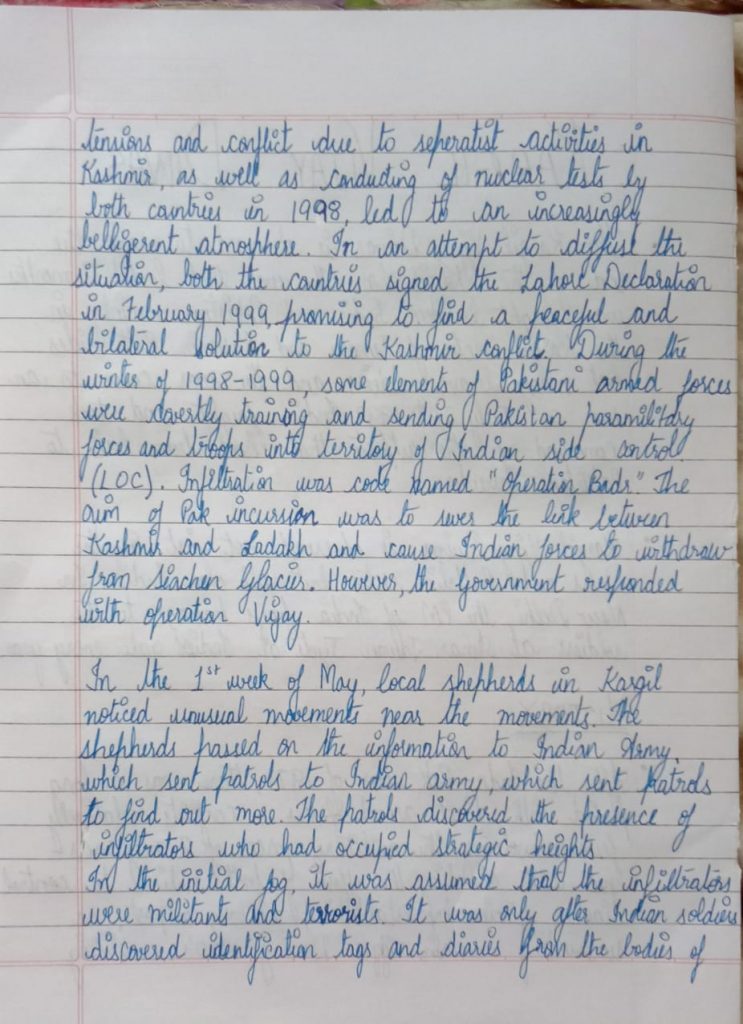 tensions and conflict due to seperatist activities in
Kashmir, as well as conducting of nuclear tests by
both countries in 1998, led to an increasingly
belligerent atmosphere. In an attempt to diffuse the
situation, both the countries signed the Lahore Declaration
in February 1999, promising to find a peaceful and
bilateral solution to the Kashmir conflict. During the
winter of 1998-1999, some elements of Pakistani armed forces
were covertly training and sending Pakistan paramilitary
forces and troops into territory of Indian side control
(LOC). Infiltration was code named "Operation Badr". The
aim of Pak incursion was to sever the link between
Kashmir and Ladakh and cause Indian forces to withdraw
from Siachen Glacier. However, the Government responded
with operation Vijay.
In the 1st week of May, local shepherds in Kargil
noticed unusual movements near the movements. The
shepherds passed on the information to Indian Army,
which sent patrols to Indian army, which sent patrols
to find out more. The patrols discovered the presence of
infiltrators who had occupied strategic heights.
In the initial fog, it was assumed that the infiltrators
were militants and terrorists. It was only after Indian soldiers
discovered identification tags and diaries from the bodies of